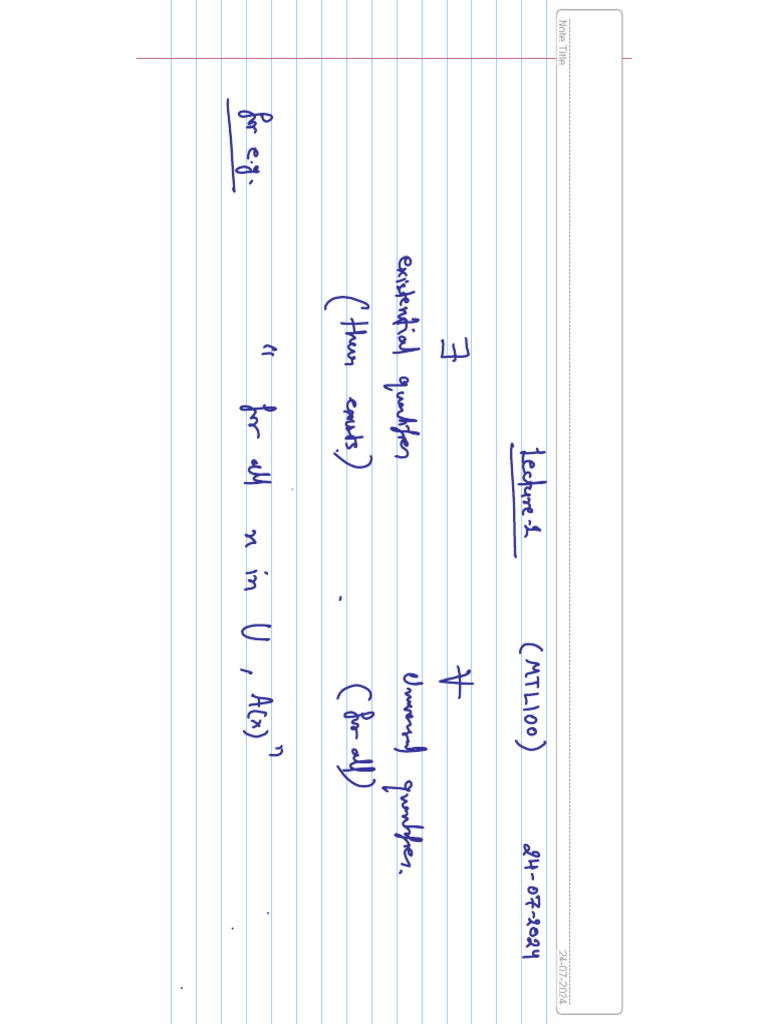 Note Title
24-07-2024
Lecture-2 (MTL100) 24-07-2024
∃ ∀
existential quantifier universal quantifier.
(there exists) (for all)
for e.g. "for all x in U, A(x)"